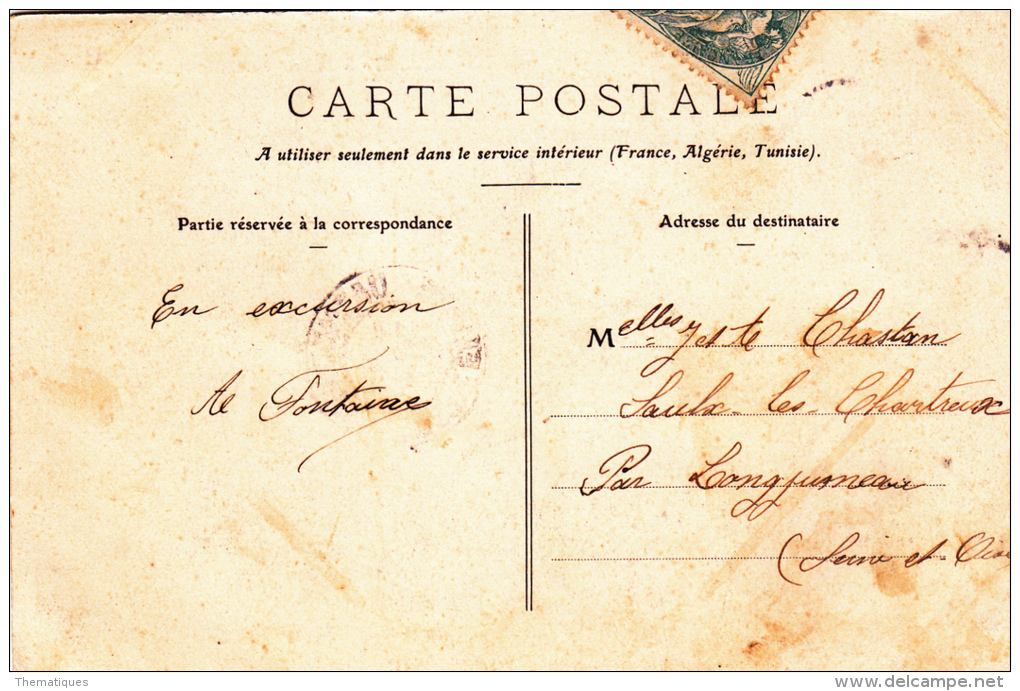 CARTE POSTALE
A utiliser seulement dans le service intérieur (France, Algérie, Tunisie).
Partie réservée à la correspondance
En excursion
Fontaine
Adresse du destinataire
Melles et Chastan
Saulx-les-Chartreux
Par Longjumeau
(Seine et Oise
Thematiques
delcampe.net